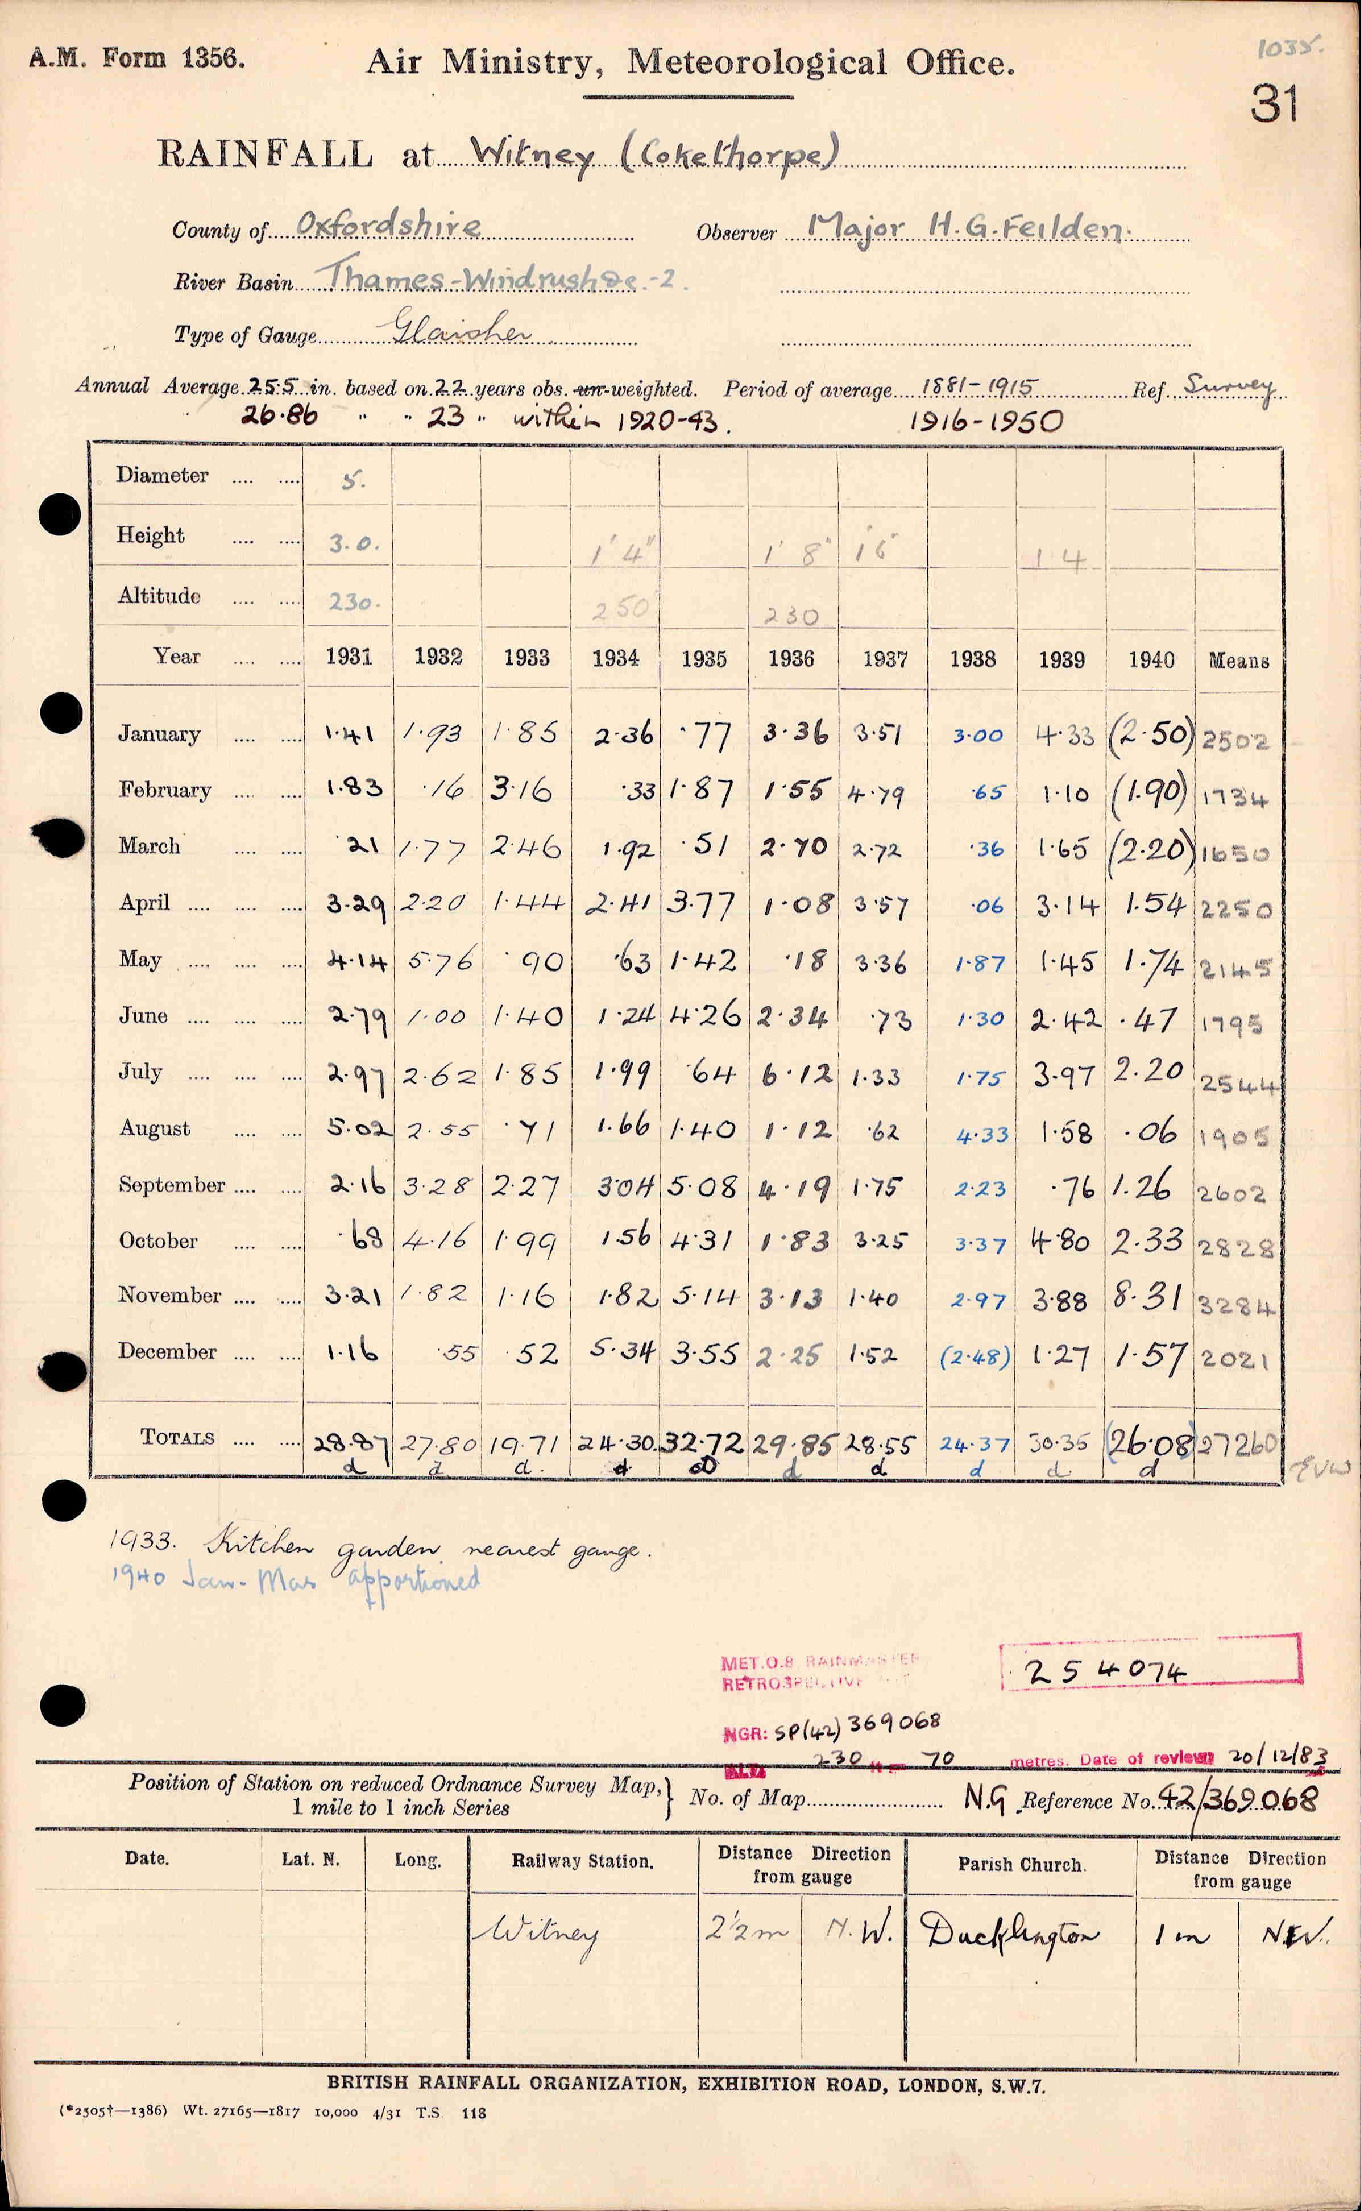 1035.
A.M. Form 1356. Air Ministry, Meteorological Office.
31
RAINFALL at Witney (Cokethorpe)
County of Oxfordshire Observer Major H.G. Feilden.
River Basin Thames-Windrush &c.-2.
Type of Gauge Glaisher
Annual Average 25.5 in. based on 22 years obs. un-weighted. Period of average 1881-1915 Ref. Survey
26.86 " " 23 " within 1920-43. 1916-1950
Diameter 5.
Height 3.0. 1' 4" 1' 8" 1 6" 1 4
Altitude 230. 250 230
Year 1931 1932 1933 1934 1935 1936 1937 1938 1939 1940 Means
January 1.41 1.93 1.85 2.36 .77 3.36 3.51 3.00 4.33 (2.50) 2502
February 1.83 .16 3.16 .33 1.87 1.55 4.79 .65 1.10 (1.90) 1734
March .21 1.77 2.46 1.92 .51 2.70 2.72 .36 1.65 (2.20) 1650
April 3.29 2.20 1.44 2.41 3.77 1.08 3.57 .06 3.14 1.54 2250
May 4.14 5.76 .90 .63 1.42 .18 3.36 1.87 1.45 1.74 2145
June 2.79 1.00 1.40 1.24 4.26 2.34 .73 1.30 2.42 .47 1795
July 2.97 2.62 1.85 1.99 .64 6.12 1.33 1.75 3.97 2.20 2544
August 5.02 2.55 .71 1.66 1.40 1.12 .62 4.33 1.58 .06 1905
September 2.16 3.28 2.27 3.04 5.08 4.19 1.75 2.23 .76 1.26 2602
October .68 4.16 1.99 1.56 4.31 1.83 3.25 3.37 4.80 2.33 2828
November 3.21 1.82 1.16 1.82 5.14 3.13 1.40 2.97 3.88 8.31 3284
December 1.16 .55 .52 5.34 3.55 2.25 1.52 (2.48) 1.27 1.57 2021
TOTALS 28.87 27.80 19.71 24.30 32.72 29.85 28.55 24.37 30.35 (26.08) 27260
d d d. d d d d d d d
1933. Kitchen garden nearest gauge.
1940 Jan-Mar apportioned
MET.O.8 RAINMASTER
RETROSPECTIVE
254074
NGR: SP(42) 369068
ALT: 230 70 metres. Date of review 20/12/83
Position of Station on reduced Ordnance Survey Map,
1 mile to 1 inch Series
No. of Map N.G. Reference No. 42/369068
Date. Lat. N. Long. Railway Station. Distance Direction from gauge Parish Church. Distance Direction from gauge
Witney 2½m N.W. Ducklington 1 m N.W.
BRITISH RAINFALL ORGANIZATION, EXHIBITION ROAD, LONDON, S.W.7.
(*2505†—1386) Wt. 27165—1817 10,000 4/31 T.S. 118